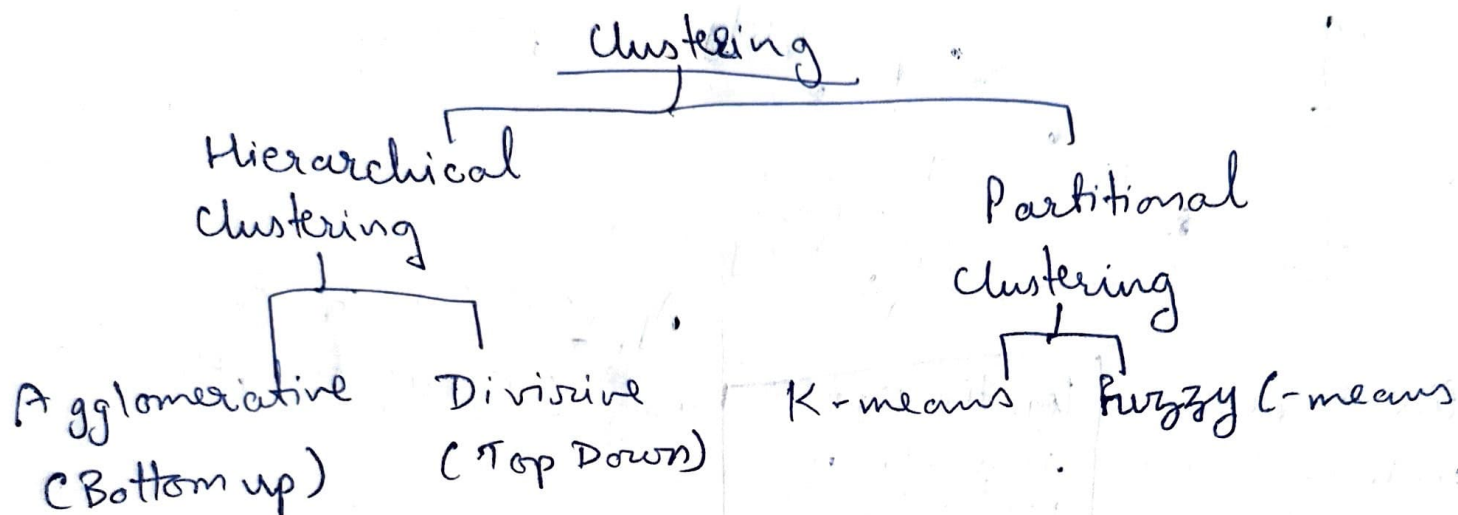 Clustering
Hierarchical
Clustering
Partitional
Clustering
Agglomeriative
(Bottom up)
Divisive
(Top Down)
K-means
Fuzzy C-means